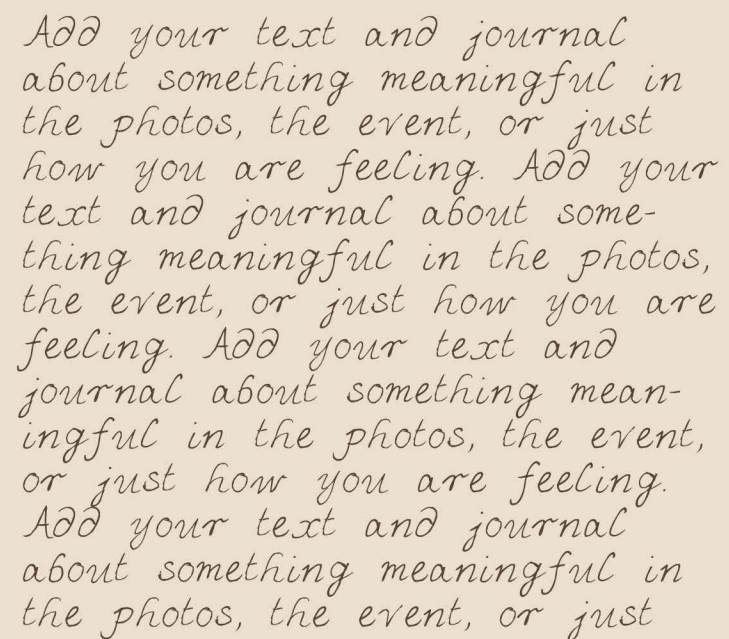 Add your text and journal
about something meaningful in
the photos, the event, or just
how you are feeling. Add your
text and journal about some-
thing meaningful in the photos,
the event, or just how you are
feeling. Add your text and
journal about something mean-
ingful in the photos, the event,
or just how you are feeling.
Add your text and journal
about something meaningful in
the photos, the event, or just